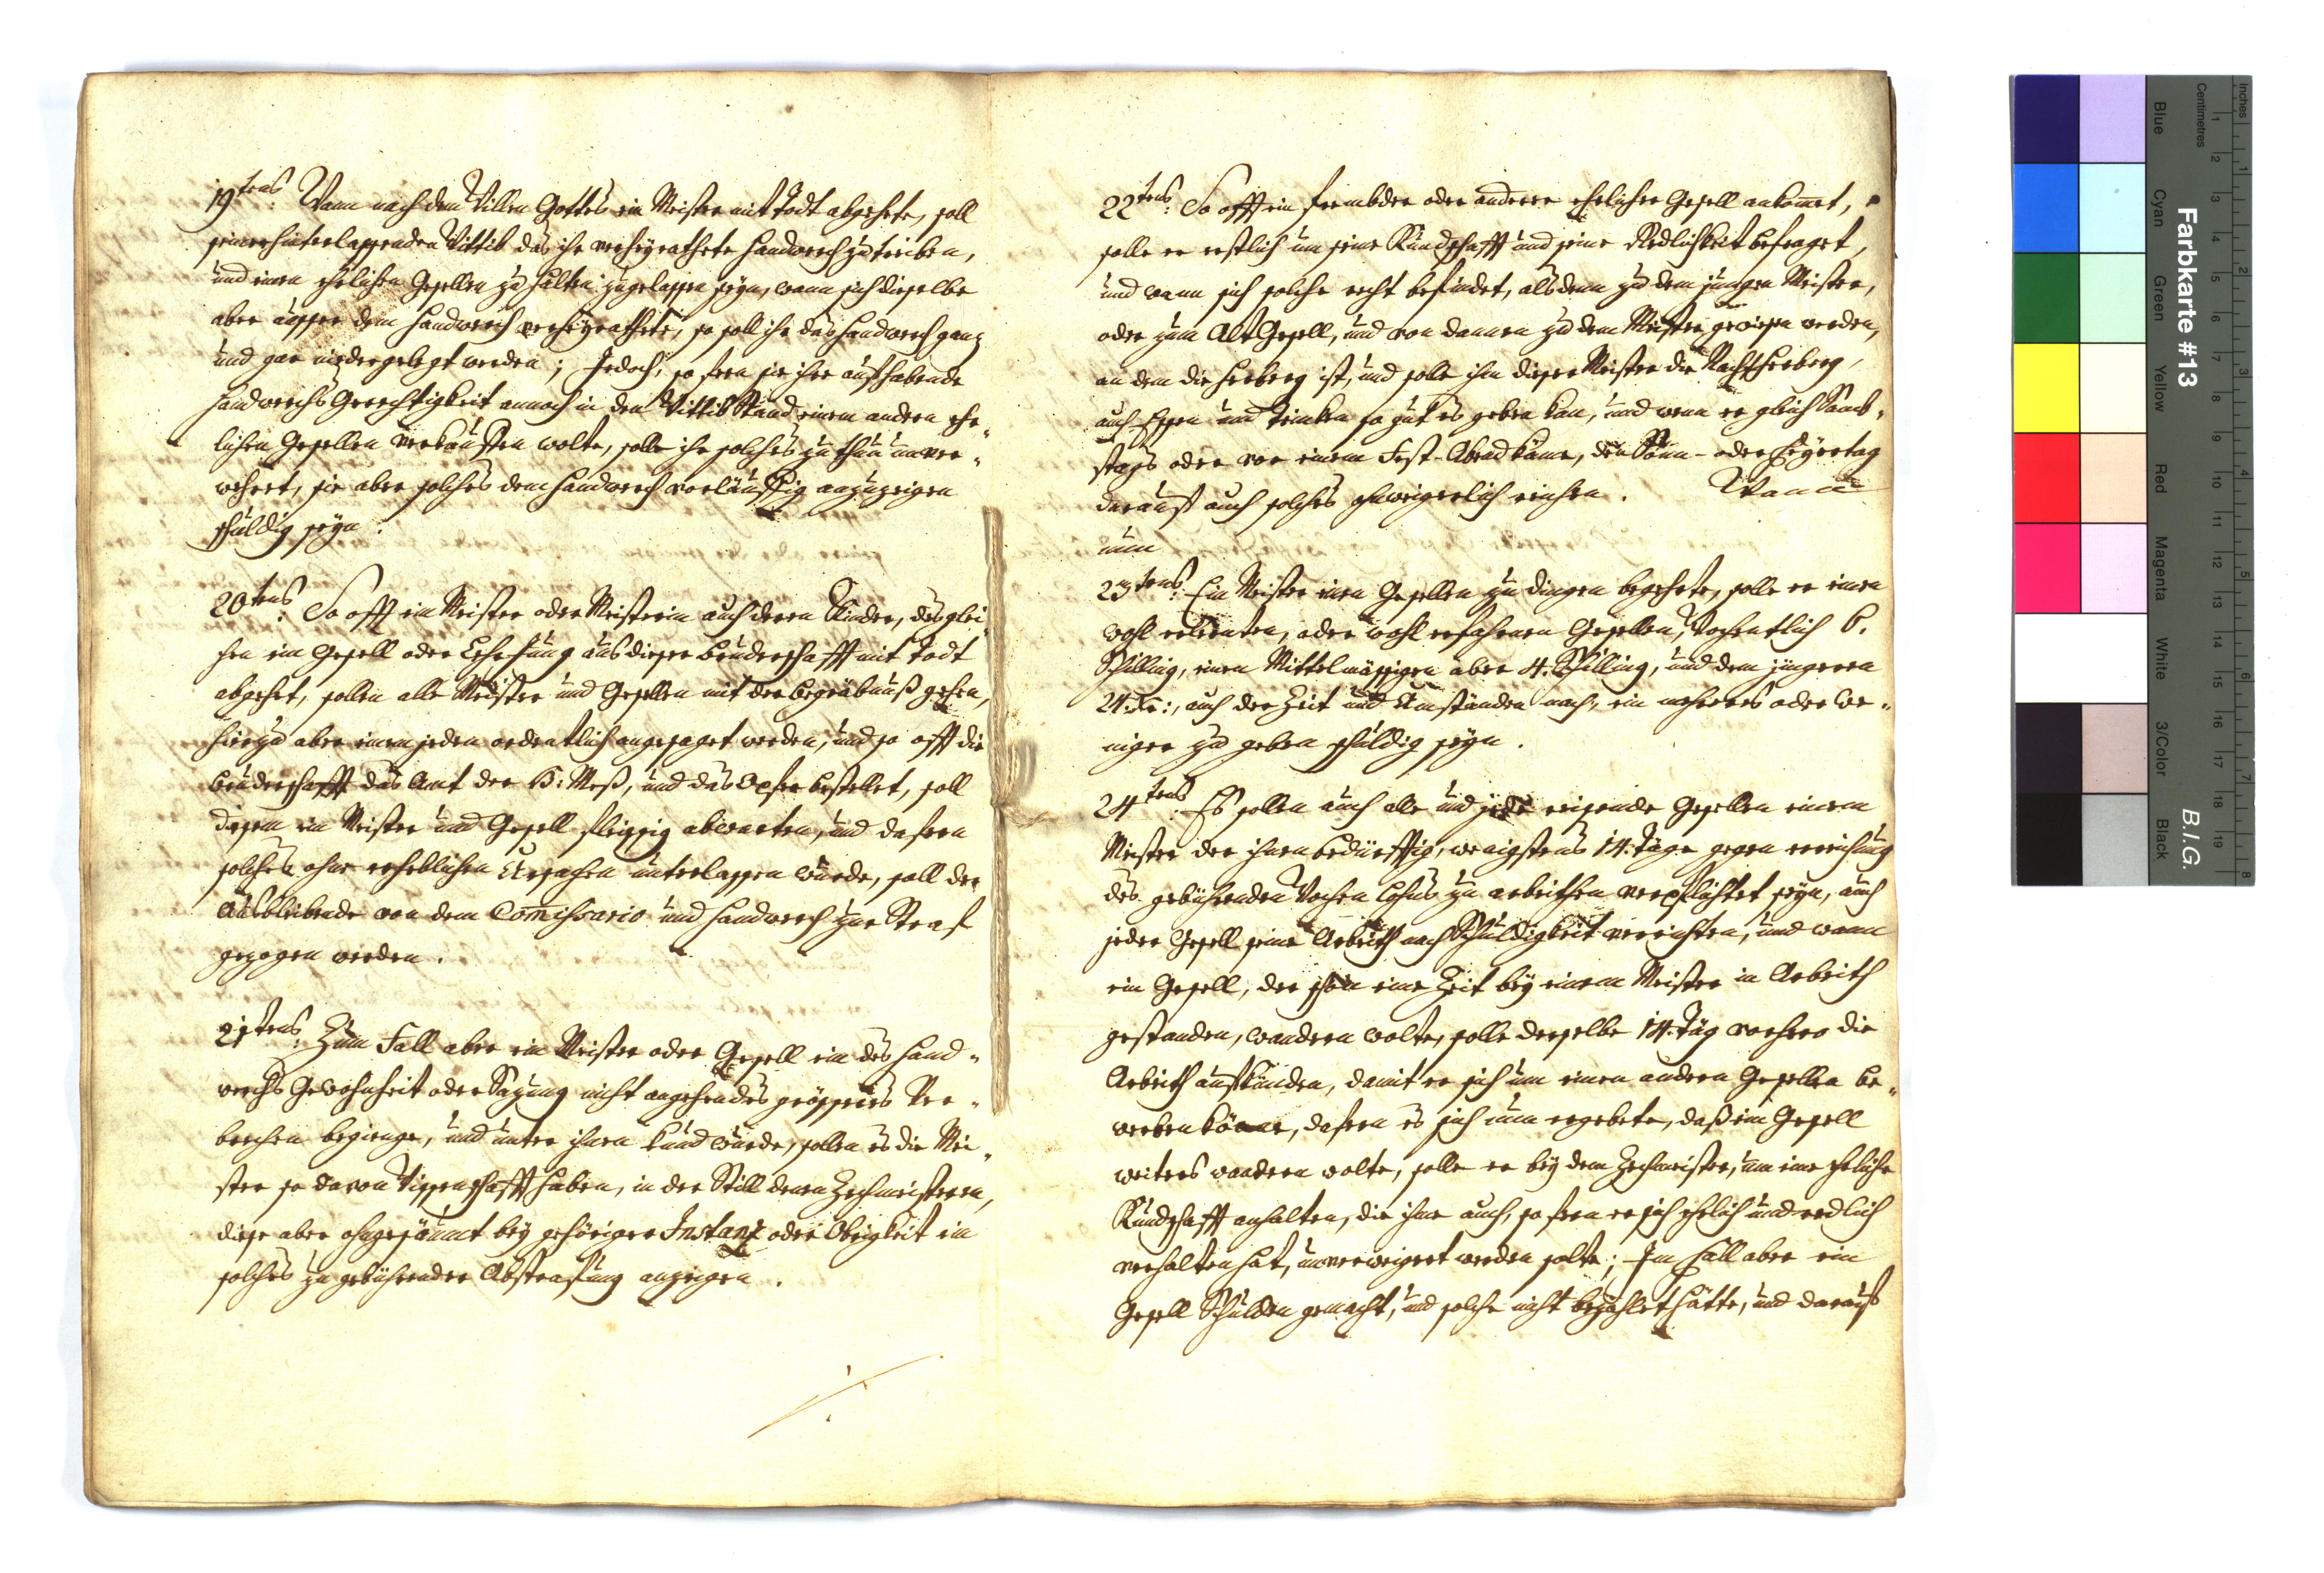 19tens: Wann nach dem Willen Gottes ein Meister mit Todt abgehete, soll
seiner hinterlassenden Wittib das ihr verheyrathete Handwerch zu treiben,
und einen ehrlichen Gesellen zu halten zugelassen seyn, wann sich dieselbe
aber ausser dem Handwerch verheyrathete, so soll ihr das Handwerch ganz
und gar nidergelegt werden; Jedoch, so fern sie ihre aufhabende
Handwerchs Gerechtigkeit annoch in dem Wittib Stand einem andern ehr„
lichen Gesellen verkauffen wolte, solle ihr solches zu thun unver„
wehret, sie aber solches dem Handwerch vorläuffig anzuzeigen
schuldig seyn.
20tens: So offt ein Meister oder Meisterin auch deren Kinder, desglei„
chen ein Gesell oder Lehrjung aus dieser Bruderschafft mit Todt
abgehet, sollen alle Meister und Gesellen mit der Begräbnuß gehen,
hierzu aber einem jeden ordentlich angesaget werden, und so offt die
Bruderschafft das Amt der H: Meß, und das Opfer bestellet, soll
disem ein Meister und Gesell fleissig abwarten, und dafern
solches ohne erheblichen Ursachen unterlassen wurde, soll der
Ausbleibende von dem Comissario und Handwerch zur Straf
gezogen werden.
21tens: Zum Fall aber ein Meister oder Gesell ein des Hand„
werchs Gewohnheit oder Sazung nicht angehendes grösseres Ver„
brechen begienge, und unter ihnen kund wurde, sollen es die Mei„
ster so davon Wissenschafft haben, in der Still denen Zechmeistern,
diese aber ohngesäumt bey gehöriger Instanz oder Obrigkeit ein
solches zu gebührender Abstrafung anzeigen.
22tens: So offt ein frembder oder anderer ehrlicher Gesell ankomet,
solle er erstlich um seine Kundschafft und seine Redlichkeit befraget,
und wann sich solche recht befindet, alsdenn zu dem jungen Meister,
oder zum Alt Gesell, und von dannen zu dem Meister gewisen werden,
an dem die Herberg ist, und solle ihm dieser Meister die Nacht Herberg,
auch Essen und Trinken so gut es geben kan, und wenn er gleich Samb„
stags oder vor einem Fest-Abend käme, den Sonn- oder Feyertag
darauf auch solches ohnweigerlich reichen. Wann
nun
23tens: Ein Meister einen Gesellen zu dingen begehrte, solle er einen
wohl erlernten, oder wohl erfahrnen Gesellen, Wochentlich 6.
Schilling, einen Mittelmässigen aber 4. Schilling, und dem jüngeren
24. Kr:, auch der Zeit und Umständen nach, ein mehreres oder we„
niger zu geben schuldig seyn.
24tens: Es sollen auch alle und jede reisende Gesellen einem
Meister der ihnen bedürfftig, wenigstens 14. Täge gegen Erreichung
des gebührenden Wochen Lohns zu arbeithen verpflichtet seyn, auch
jeder Gesell seine Arbeith nach Schuldigkeit verrichten, und wann
ein Gesell, der schon eine Zeit bey einem Meister in Arbeith
gestanden, wandern wolte, solle derselbe 14. Täg vorhero die
Arbeith aufkünden, damit er sich um einen andern Gesellen be„
werben könne, dafern es sich nun ergebete, daß ein Gesell
weiters wandern wolte, solle er bey dem Zechmeister, um eine ehrliche
Kundschafft anhalten, die ihme auch, so fern er sich ehrlich und redlich
verhalten hat, unverweigert werden solte; Im Fall aber ein
Gesell Schulden gemacht, und solche nicht bezahlet hätte, und darauf
Farbkarte #13
B.I.G.
Blue
Cyan
Green
Yellow
Red
Magenta
White
3/Color
Black
Centimetres
Inches
1 2 3 4 5 6 7 8 9 10 11 12 13 14 15 16 17 18 19
1 2 3 4 5 6 7 8